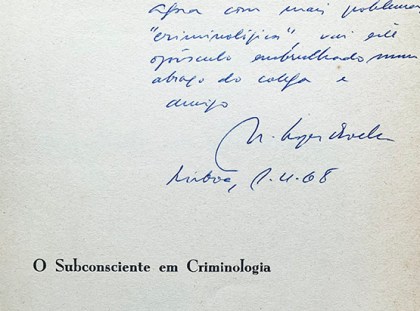 agora com mais problemas
"criminológicos", vai este
opúsculo embrulhado num
abraço do colega e
amigo
Lisboa, 2.4.68
O Subconsciente em Criminologia